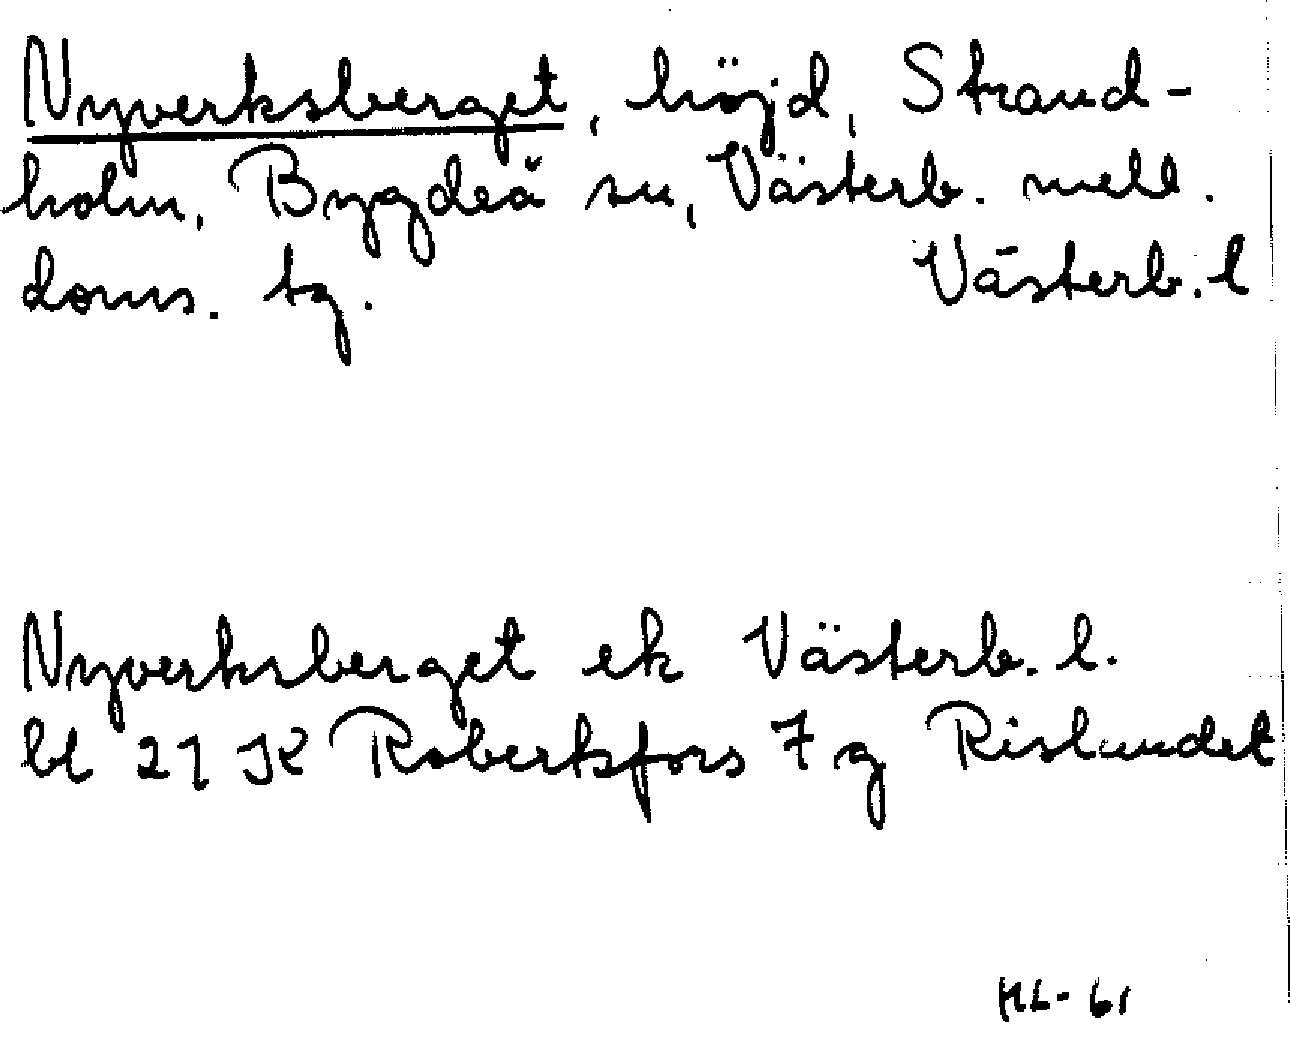 Nyverksberget, höjd, Strand-
holm, Bygdeå sn, Västerb. mell.
doms. tg. Västerb. l
Nyverksberget ek Västerb. l.
bl 21 K Robertsfors 7 g Rislandet
HL-61